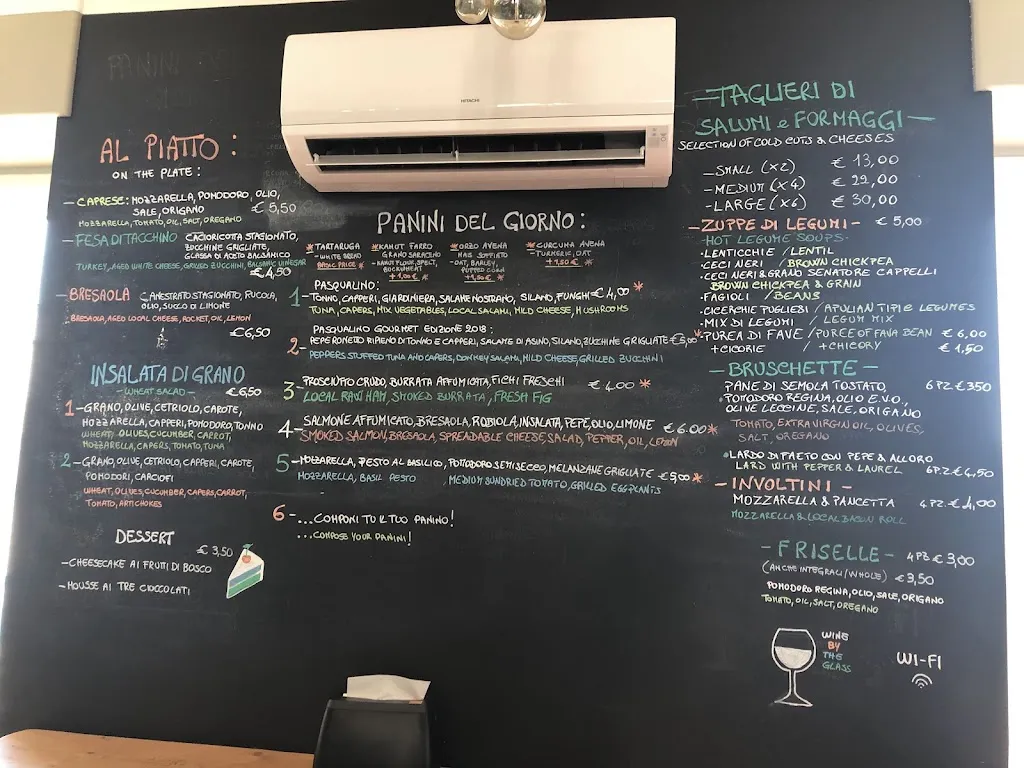 HITACHI
AL PIATTO:
ON THE PLATE:
- CAPRESE: MOZZARELLA, POMODORO, OLIO,
SALE, ORIGANO € 5,50
MOZZARELLA, TOMATO, OIL, SALT, OREGANO
- FESA DI TACCHINO CACIORICOTTA STAGIONATO,
ZUCCHINE GRIGLIATE,
GLASSA DI ACETO BALSAMICO
TURKEY, AGED WHITE CHEESE, GRILLED ZUCCHINI, BALSAMIC VINEGAR
€ 4,50
- BRESAOLA CANESTRATO STAGIONATO, RUCOLA,
OLIO, SUCCO DI LIMONE
BRESAOLA, AGED LOCAL CHEESE, ROCKET, OIL, LEMON
€ 6,50
INSALATA DI GRANO
- WHEAT SALAD - € 6,50
1 - GRANO, OLIVE, CETRIOLO, CAROTE,
MOZZARELLA, CAPPERI, POMODORO, TONNO
WHEAT, OLIVES, CUCUMBER, CARROT,
MOZZARELLA, CAPERS, TOMATO, TUNA
2 - GRANO, OLIVE, CETRIOLO, CAPPERI, CAROTE,
POMODORI, CARCIOFI
WHEAT, OLIVES, CUCUMBER, CAPERS, CARROT,
TOMATO, ARTICHOKES
DESSERT
€ 3,50
- CHEESECAKE AI FRUTTI DI BOSCO
- MOUSSE AI TRE CIOCCOLATI
PANINI DEL GIORNO:
* TARTARUGA
- WHITE BREAD
BASIC PRICE *
* KAMUT FARRO
GRANO SARACENO
- KAMUT FLOUR, SPELT,
BUCKWHEAT
+ 1,00 € *
* ORZO AVENA
MAIS SOFFIATO
- OAT, BARLEY,
PUFFED CORN
+ 1,50 € *
* CURCUMA AVENA
- TURMERIC, OAT
+ 1,50 € *
PASQUALINO:
1 - TONNO, CAPPERI, GIARDINIERA, SALAME NOSTRANO, SILANO, FUNGHI € 4,00 *
TUNA, CAPERS, MIX VEGETABLES, LOCAL SALAMI, MILD CHEESE, MUSHROOMS
PASQUALINO GOURMET EDIZIONE 2018:
2 - PEPERONETTO RIPIENO DI TONNO E CAPPERI, SALAME DI ASINO, SILANO, ZUCCHINE GRIGLIATE € 5,00 *
PEPPERS STUFFED TUNA AND CAPERS, DONKEY SALAMI, MILD CHEESE, GRILLED ZUCCHINI
3 - PROSCIUTTO CRUDO, BURRATA AFFUMICATA, FICHI FRESCHI € 4.00 *
LOCAL RAW HAM, SMOKED BURRATA, FRESH FIG
4 - SALMONE AFFUMICATO, BRESAOLA, ROBIOLA, INSALATA, PEPE, OLIO, LIMONE € 6.00 *
SMOKED SALMON, BRESAOLA, SPREADABLE CHEESE, SALAD, PEPPER, OIL, LEMON
5 - MOZZARELLA, PESTO AL BASILICO, POMODORO SEMISECCO, MELANZANE GRIGLIATE € 5,00 *
MOZZARELLA, BASIL PESTO MEDIUM SUNDRIED TOMATO, GRILLED EGGPLANTS
6 - ...COMPONI TU IL TUO PANINO!
...COMPOSE YOUR PANINI!
- TAGLIERI DI
SALUMI e FORMAGGI -
SELECTION OF COLD CUTS & CHEESES
- SMALL (x2) € 13,00
- MEDIUM (x4) € 22,00
- LARGE (x6) € 30,00
- ZUPPE DI LEGUMI - € 5,00
HOT LEGUME SOUPS.
• LENTICCHIE / LENTIL
• CECI NERI / BROWN CHICKPEA
• CECI NERI & GRANO SENATORE CAPPELLI
BROWN CHICKPEA & GRAIN
• FAGIOLI / BEANS
• CICERCHIE PUGLIESI / APULIAN TIPIC LEGUMES
• MIX DI LEGUMI / LEGUM MIX
• PUREA DI FAVE / PUREE OF FAVA BEAN € 6,00
+ CICORIE / + CHICORY € 1,50
- BRUSCHETTE -
PANE DI SEMOLA TOSTATO, 6PZ € 3,50
• POMODORO REGINA, OLIO E.V.O.,
OLIVE LECCINE, SALE, ORIGANO
TOMATO, EXTRAVIRGIN OIL, OLIVES,
SALT, OREGANO
• LARDO DI FAETO CON PEPE & ALLORO
LARD WITH PEPPER & LAUREL 6PZ € 4,50
- INVOLTINI -
MOZZARELLA & PANCETTA 4PZ € 4,00
MOZZARELLA & LOCAL BACON ROLL
- FRISELLE - 4PZ € 3,00
(ANCHE INTEGRALI/WHOLE) € 3,50
POMODORO REGINA, OLIO, SALE, ORIGANO
TOMATO, OIL, SALT, OREGANO
WINE
BY
THE
GLASS
WI-FI